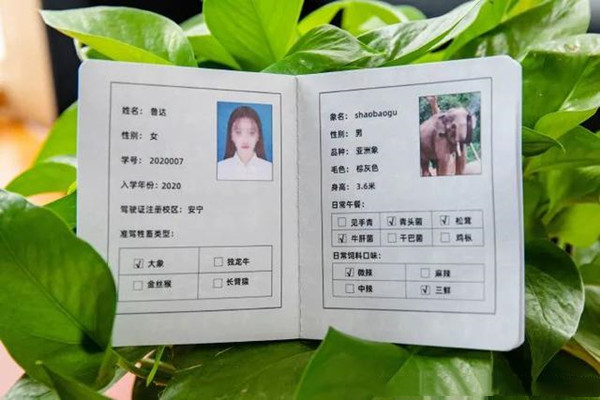 姓名： 鲁达
性别： 女
学号： 2020007
入学年份：2020
驾驶证注册校区：安宁
准驾牲畜类型：
√ 大象 独龙牛
金丝猴 长臂猿
象名： shaobaogu
性别： 男
品种： 亚洲象
毛色： 棕灰色
身高： 3.6米
日常午餐：
见手青 √ 青头菌 √ 松茸
√ 牛肝菌 干巴菌 鸡枞
日常饲料口味：
√ 微辣 麻辣
中辣 √ 三鲜